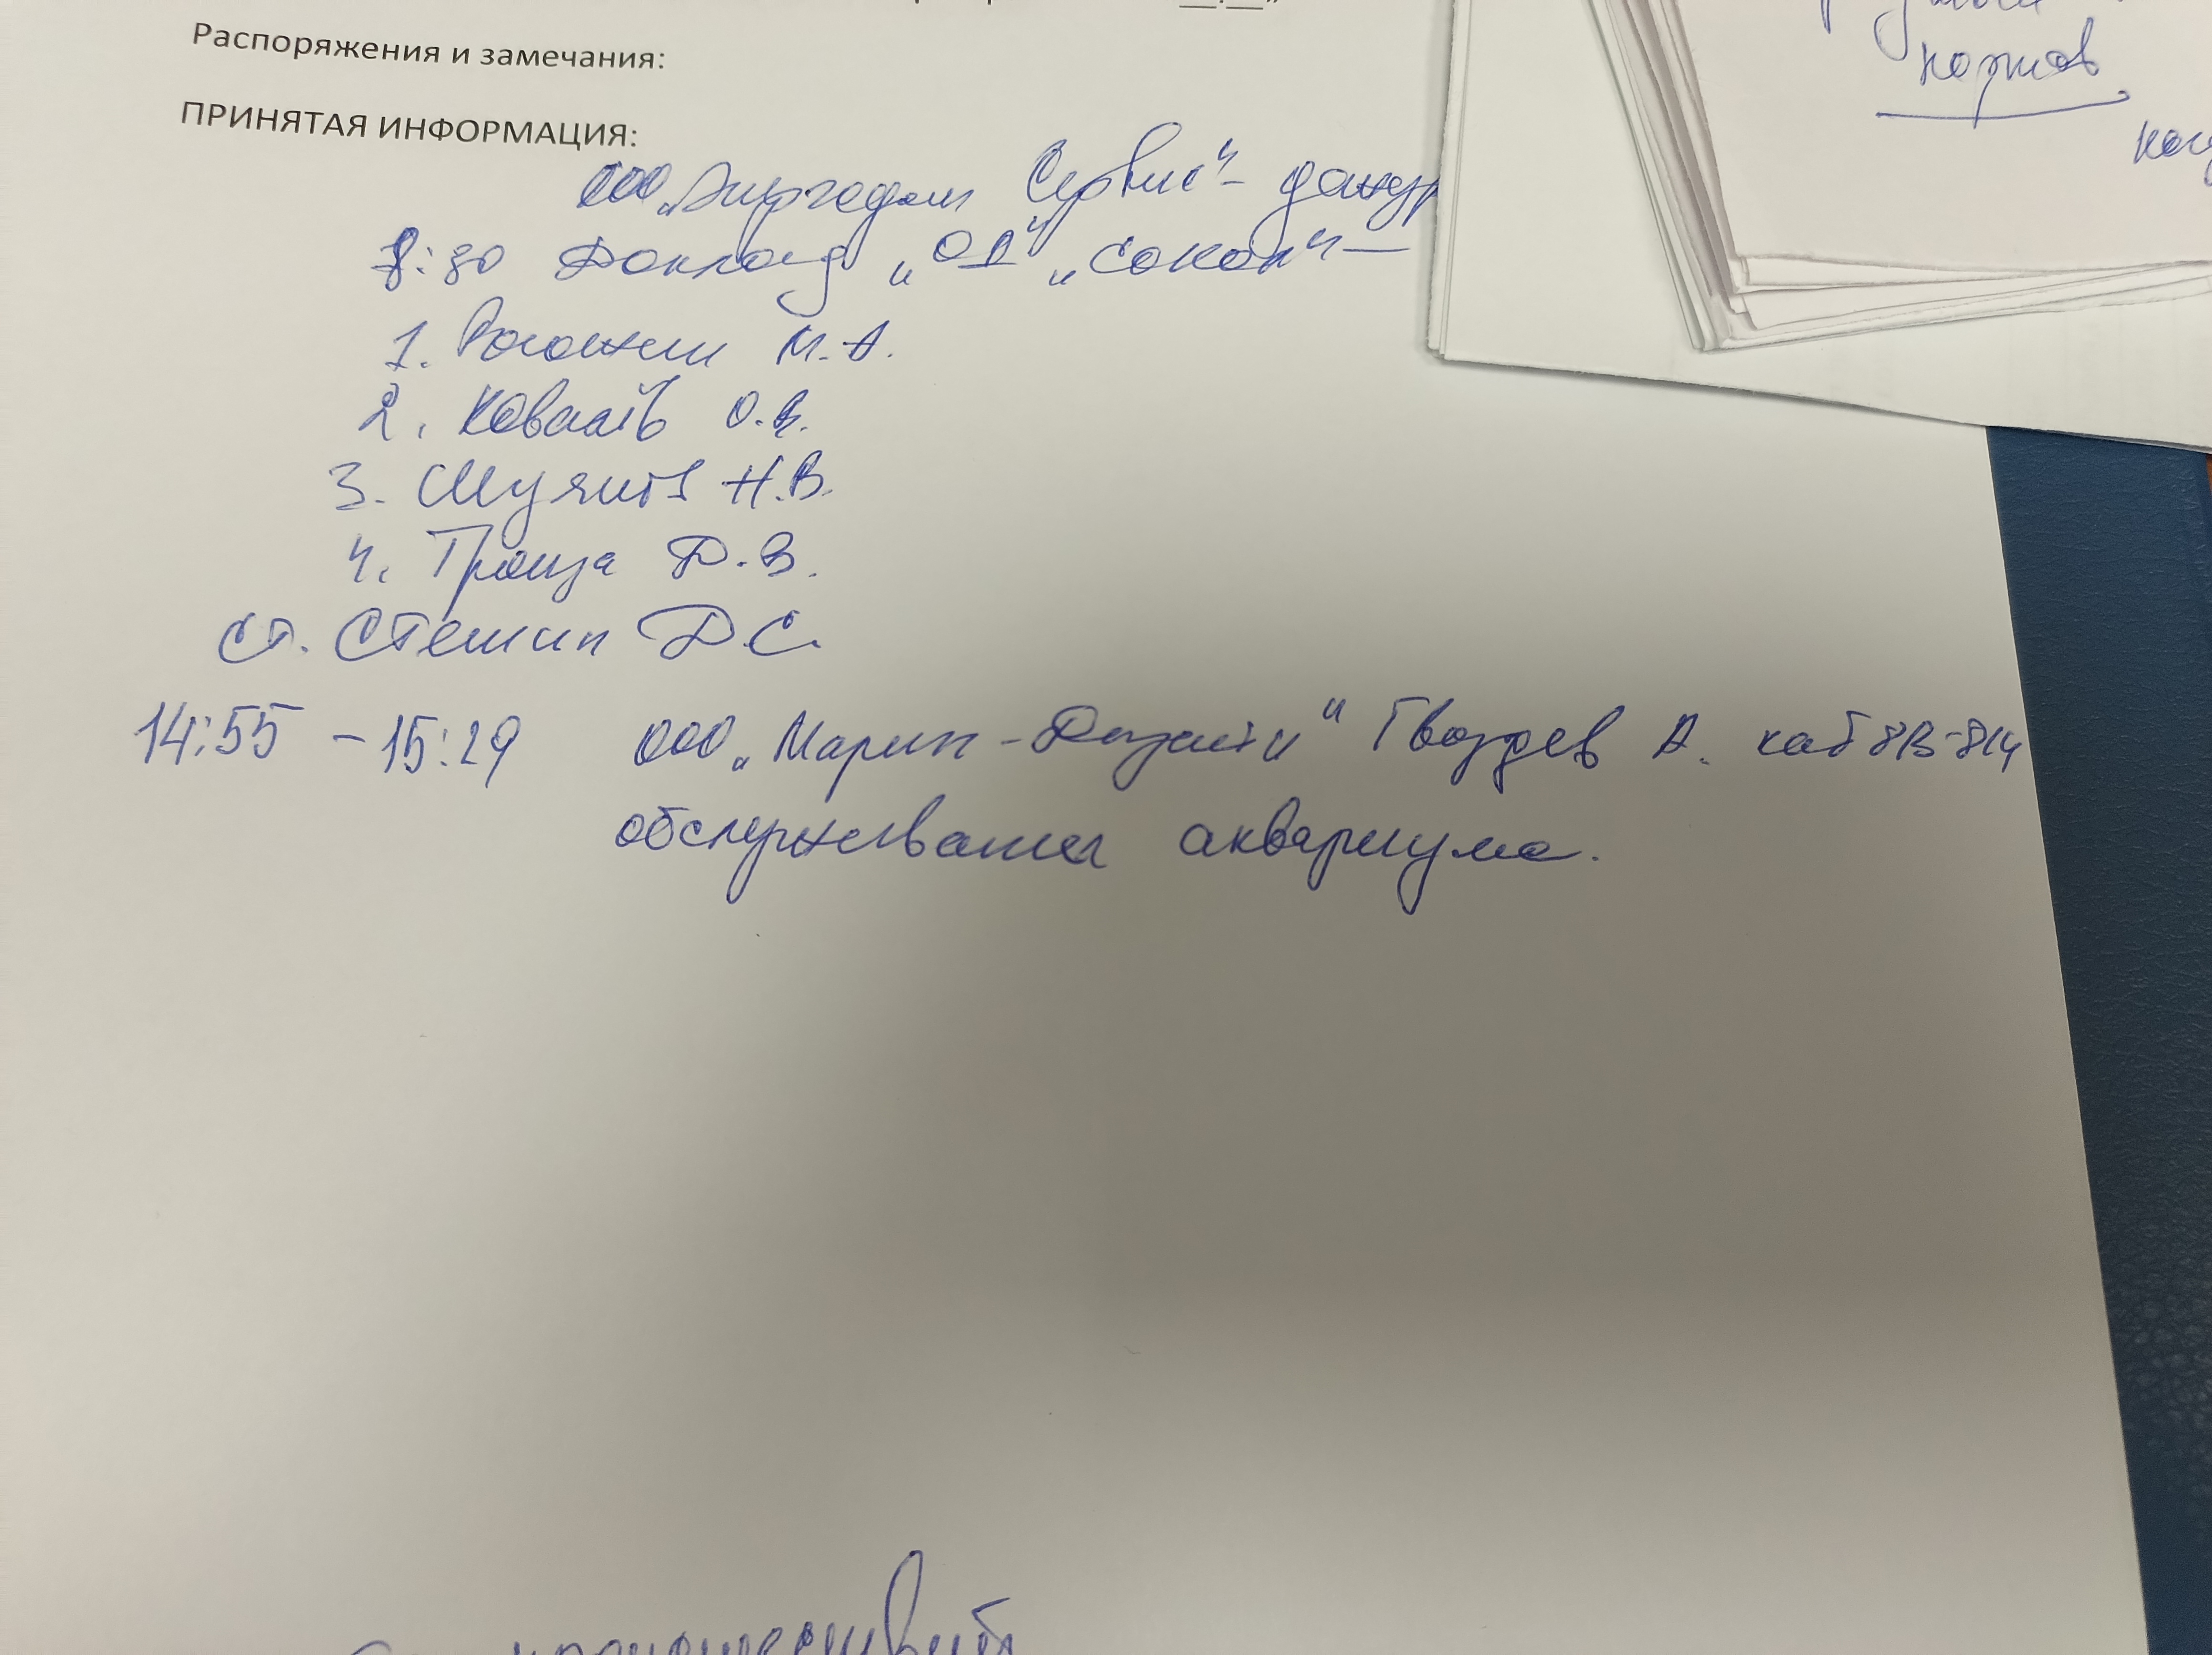 Распоряжения и замечания:
ПРИНЯТАЯ ИНФОРМАЦИЯ:
ООО „ Сервис“ –
8:30 Доклад „01“ „Сокол“ —
1. Рогожин М.А.
2. Коваль О.В.
3. Н.В.
4. Троица Д.В.
ст. Стешин Д.С.
14:55 – 15:29 ООО „Марин-Дизайн“ Гвоздев А. каб 8В-814
обслуживание аквариума.